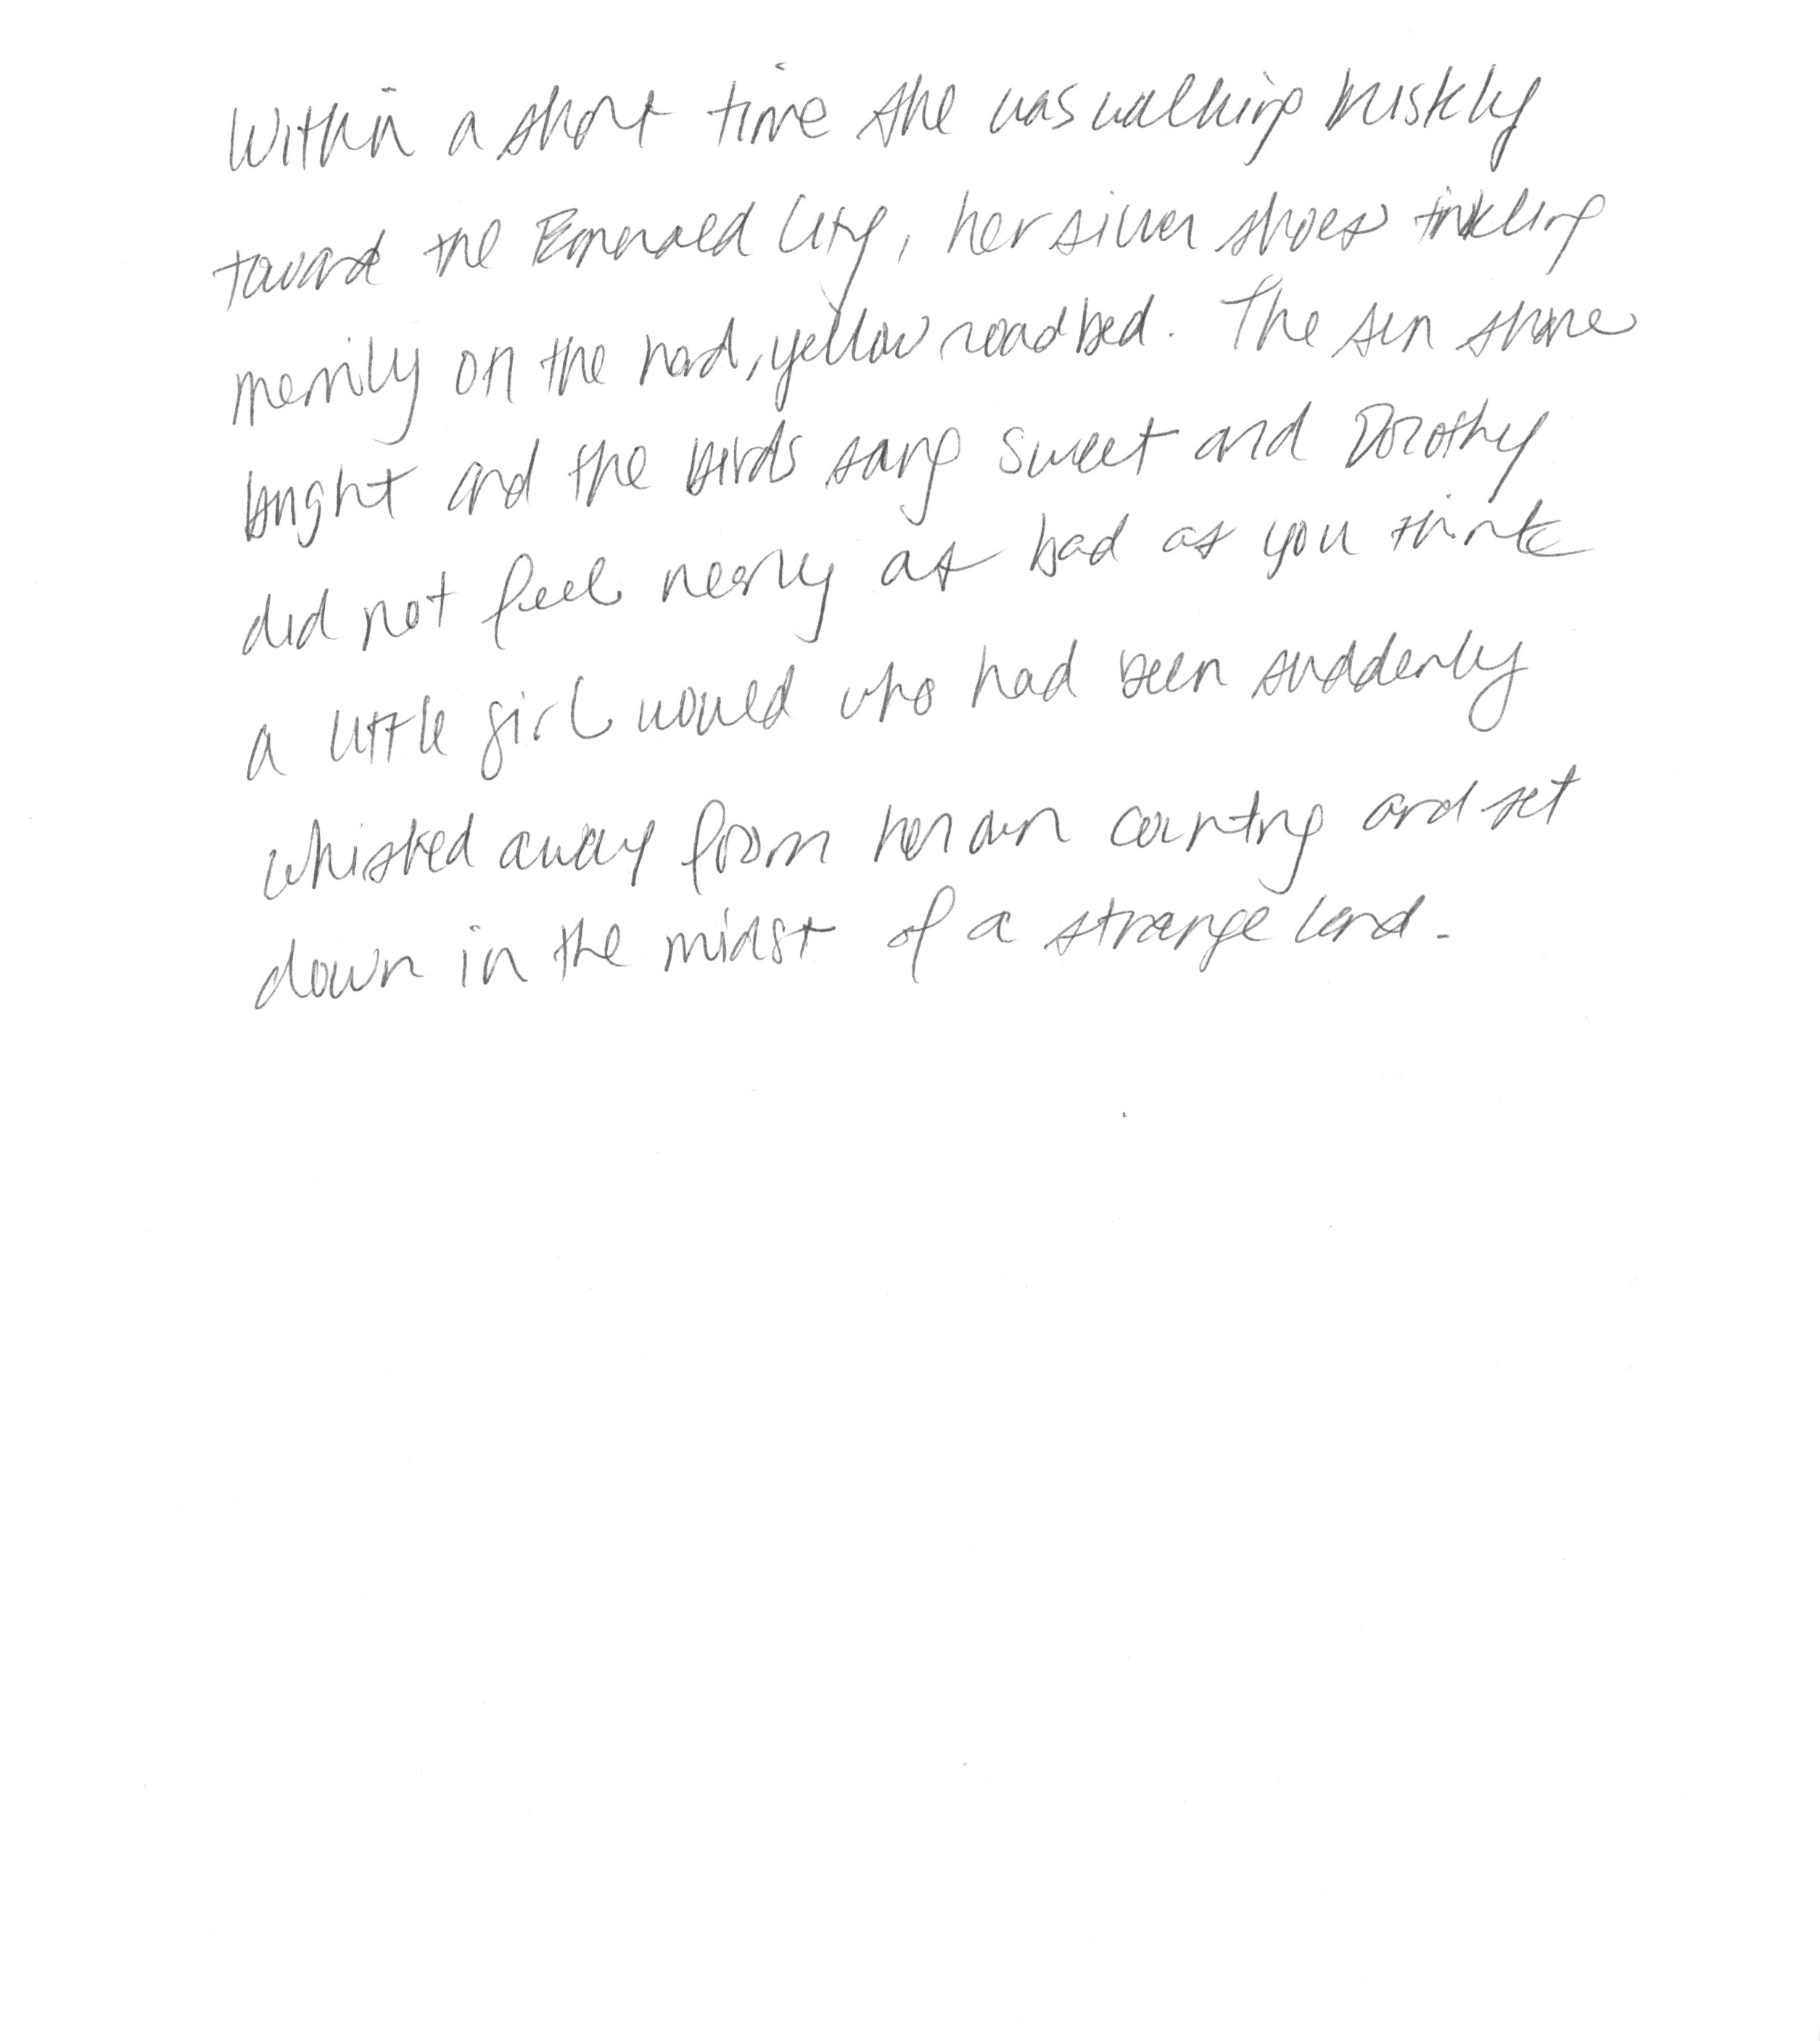 Within a short time she was walking briskly
toward the Emerald City, her silver shoes tinkling
merrily on the hard, yellow roadbed. The sun shone
bright and the birds sang sweet and Dorothy
did not feel nearly as bad as you think
a little girl would who had been suddenly
whisked away from her own country and set
down in the midst of a strange land.